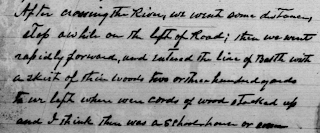 After crossing the River, we went some distance,
stop awhile on the left of Road; then we went
rapidly forward, and entered the line of Battle with
a skirt of thin woods two or three hundred yards
to our left where were cords of wood stacked up
and I think there was a School house or